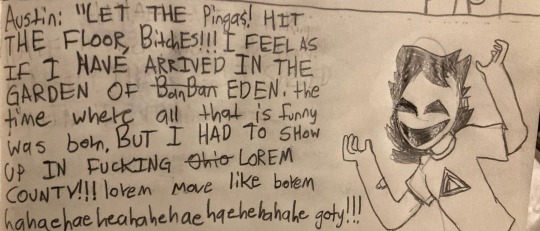 Austin: "LET THE Pingas! HIT
THE FLOOR, BitcHES!!! I FEEL AS
IF I HAVE ARRIVED IN THE
GARDEN OF BanBan EDEN. the
time where all that is funny
was born, BUT I HAD TO SHOW
UP IN FUCKING Ohio LOREM
COUNTY!!! lorem move like borem
hahaehaeheahahehaehaehehahahe goty!!!